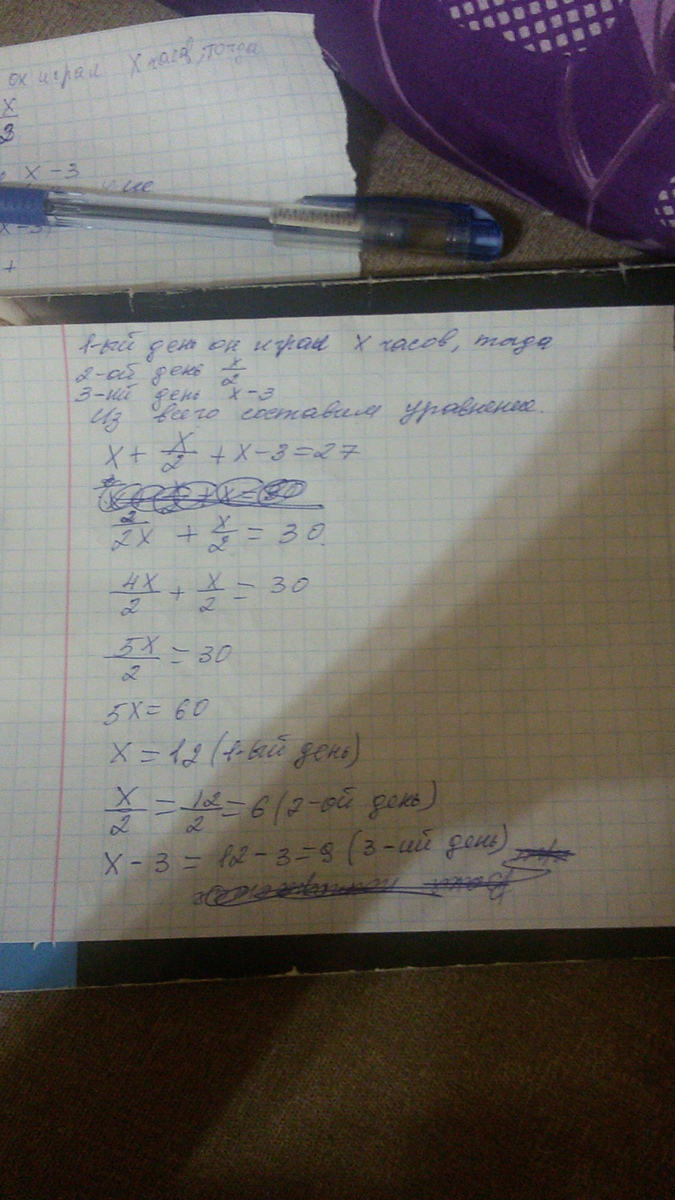 он играл x часов, тогда
x/3
x-3
x-3)
+
1-ый день он играл x часов, тогда
2-ой день x/2
3-ий день x-3
Из всего составим уравнение.
x + x/2 + x-3=27
2/2x + x/2 = 30.
4x/2 + x/2 = 30
5x/2 = 30
5x = 60
x = 12 (1-ый день)
x/2 = 12/2 = 6 (2-ой день)
x - 3 = 12-3=9 (3-ий день)